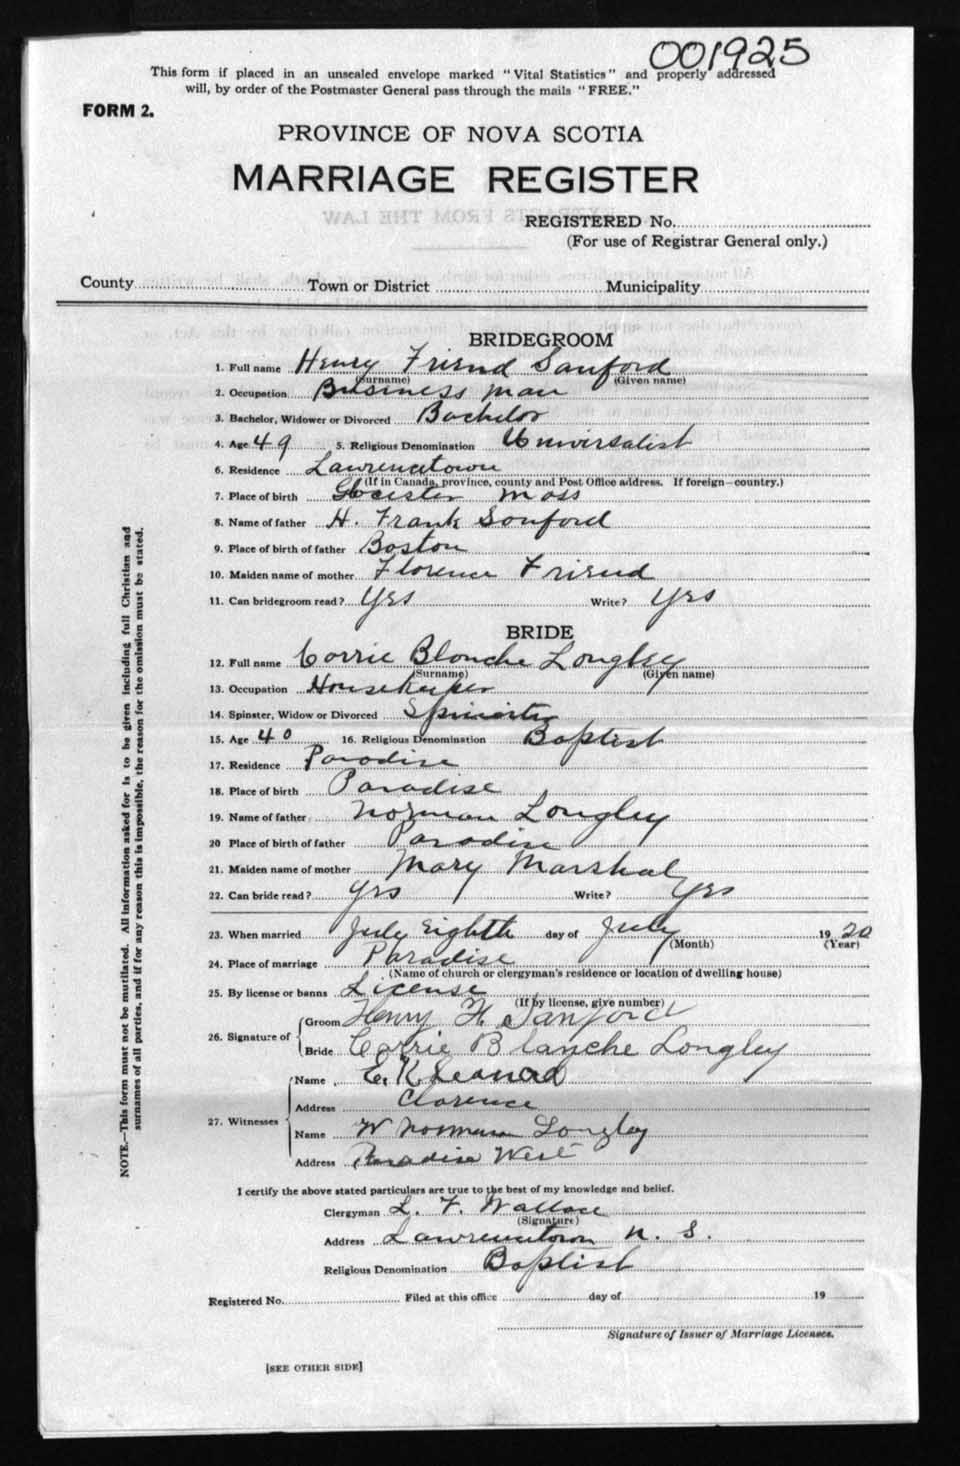 001925
This form if placed in an unsealed envelope marked "Vital Statistics" and properly addressed
will, by order of the Postmaster General pass through the mails "FREE."
FORM 2.
PROVINCE OF NOVA SCOTIA
MARRIAGE REGISTER
REGISTERED No.
(For use of Registrar General only.)
County Town or District Municipality
BRIDEGROOM
1. Full name Henry Friend Sanford
(Surname) (Given name)
2. Occupation Business man
3. Bachelor, Widower or Divorced Bachelor
4. Age 49 5. Religious Denomination Universalist
6. Residence Lawrencetown
(If in Canada, province, county and Post Office address. If foreign—country.)
7. Place of birth Mass
8. Name of father H. Frank Sanford
9. Place of birth of father Boston
10. Maiden name of mother Florence Friend
11. Can bridegroom read? Yes Write? Yes
BRIDE
12. Full name Carrie Blanche Longley
(Surname) (Given name)
13. Occupation Housekeeper
14. Spinster, Widow or Divorced Spinster
15. Age 40 16. Religious Denomination Baptist
17. Residence Paradise
18. Place of birth Paradise
19. Name of father Norman Longley
20 Place of birth of father Paradise
21. Maiden name of mother Mary Marshal
22. Can bride read? yrs Write? Yes
23. When married July Eighth day of July 1920
(Month) (Year)
24. Place of marriage Paradise
(Name of church or clergyman's residence or location of dwelling house)
25. By license or banns License
(If by license, give number)
26. Signature of Groom Henry F. Sanford
Bride Carrie Blanche Longley
27. Witnesses Name E. K. Leonard
Address Clarence
Name W Norman Longley
Address Paradise West
I certify the above stated particulars are true to the best of my knowledge and belief.
Clergyman L. F. Wallace
(Signature)
Address Lawrencetown N. S.
Religious Denomination Baptist
Registered No. Filed at this office day of 19
Signature of Issuer of Marriage Licenses.
[SEE OTHER SIDE]
NOTE.—This form must not be mutilated. All information asked for is to be given including full Christian and
surnames of all parties, and if for any reason this is impossible, the reason for the omission must be stated.